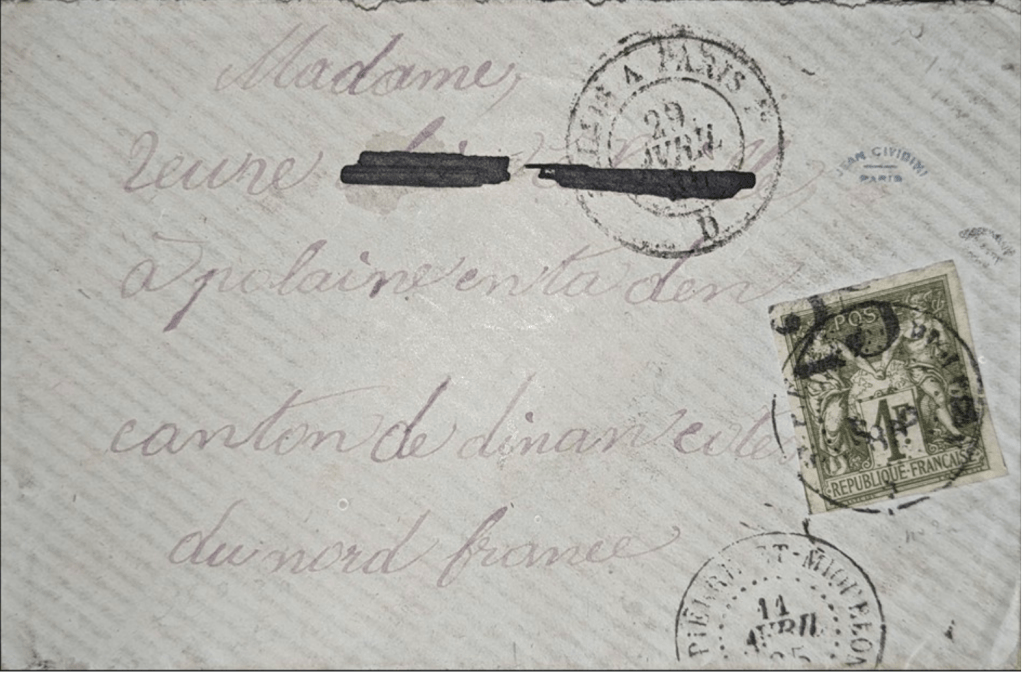 Madame,
veuve
a polaine en ta den
canton de dinan cote
du nord france
A PARIS
29
AVRIL
D
JEAN CIVIDINI
PARIS
POSTES
25
1F
REPUBLIQUE FRANCAISE
PIERRE-ET-MIQUELON
11
AVRIL